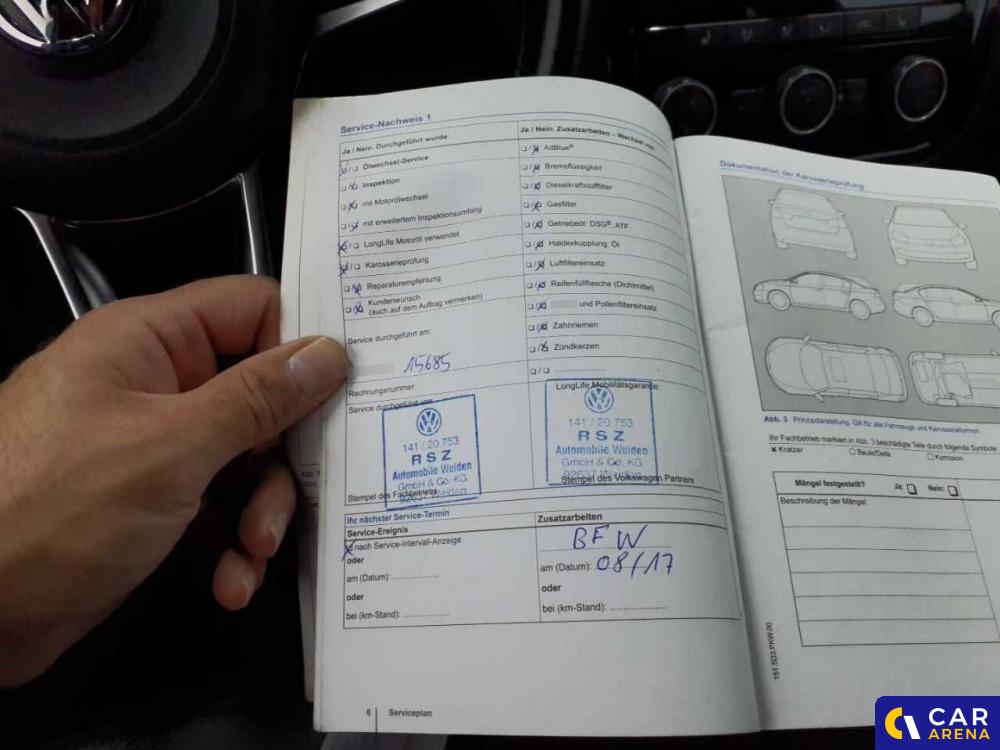 Service-Nachweis 1
Ja / Nein. Durchgeführt wurde:
Ölwechsel-Service
Inspektion
mit Motorölwechsel
mit erweitertem Inspektionsumfang
LongLife Motoröl verwendet
Karosserieprüfung
Reparaturempfehlung
Kundenwunsch
(auch auf dem Auftrag vermerken)
Service durchgeführt am:
15685
Rechnungsnummer:
Service durchgeführt von
141 / 20 753
RSZ
Automobile Weiden
GmbH & Co. KG
92637 Weiden
Stempel des Fachbetriebs
Ja / Nein. Zusatzarbeiten – Wechsel von
AdBlue®
Bremsflüssigkeit
Dieselkraftstofffilter
Gasfilter
Getriebeöl: DSG®, ATF
Haldexkupplung: Öl
Luftfiltereinsatz
Reifenfüllflasche (Dichtmittel)
und Pollenfiltereinsatz
Zahnriemen
Zündkerzen
LongLife Mobilitätsgarantie:
141 / 20 753
RSZ
Automobile Weiden
GmbH & Co. KG
92637 Weiden
Stempel des Volkswagen Partners
Ihr nächster Service-Termin
Service-Ereignis
nach Service-Intervall-Anzeige
oder
am (Datum):
oder
bei (km-Stand):
Zusatzarbeiten
BFW
am (Datum): 08/17
oder
bei (km-Stand):
6 Serviceplan
Dokumentation der Karosserieprüfung
Abb. 3 Prinzipdarstellung. Gilt für alle Fahrzeuge und Karosserieformen.
Ihr Fachbetrieb markiert in Abb. 3 beschädigte Teile durch folgende Symbole
Kratzer Beule/Delle Korrosion
Mängel festgestellt? Ja: Nein:
Beschreibung der Mängel:
151.5D3.PKW.00
CAR
ARENA